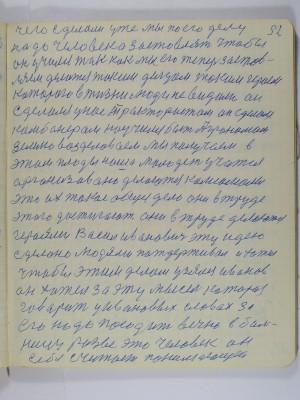 чего сделали уже мы по его делу 52
надо человека заставлять чтобы
он учился так как же его теперь застав-
лять делаться таким делом таким героем
которого в жизни люди не видели он
сделался у нас трактористом он сделался
камбанерам научился быть агрономам
землю возделоваем мы получаем в
этом плоды наша молодеж учатся
организовано делаются камсамолам
это их такое общее дело они в труде
этого достигают они в труде делаются
героями Васил иванович эту идею
сделано людями патдерживаю и хотим
чтобы этим делам узялся иванов
он хожем за эту мысль которая
говорит у ивановых словах за
его надо посодить вечно в бал-
ницу разве это человек он
себя считает понимающим